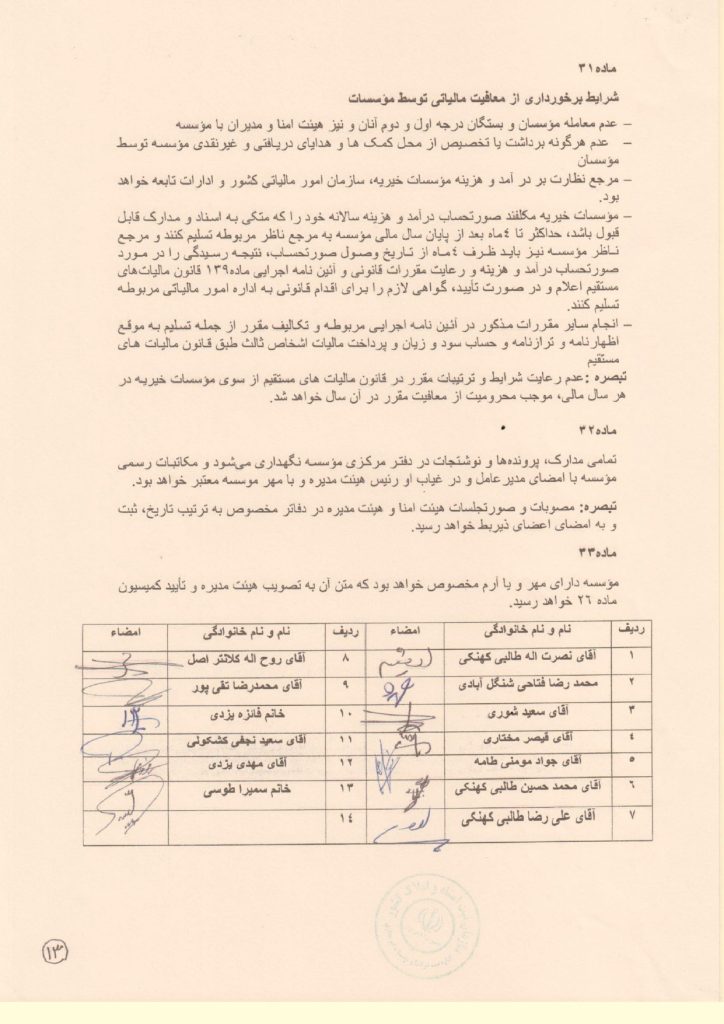 ماده۳۱
شرایط برخورداری از معافیت مالیاتی توسط مؤسسات
– عدم معامله مؤسسان و بستگان درجه اول و دوم آنان و نیز هیئت امنا و مدیران با مؤسسه
– عدم هرگونه برداشت یا تخصیص از محل کمک ها و هدایای دریافتی و غیرنقدی مؤسسه توسط
مؤسسان
– مرجع نظارت بر در آمد و هزینه مؤسسات خیریه، سازمان امور مالیاتی کشور و ادارات تابعه خواهد
بود.
– مؤسسات خیریه مکلفند صورتحساب درآمد و هزینه سالانه خود را که متکی به اسناد و مدارک قابل
قبول باشد، حداکثر تا ٤ماه بعد از پایان سال مالی مؤسسه به مرجع ناظر مربوطه تسلیم کنند و مرجع
ناظر مؤسسه نیز باید ظرف ٤ماه از تاریخ وصول صورتحساب، نتیجه رسیدگی را در مورد
صورتحساب درآمد و هزینه و رعایت مقررات قانونی و آئین نامه اجرایی ماده۱۳۹ قانون مالیات‌های
مستقیم اعلام و در صورت تأیید، گواهی لازم را برای اقدام قانونی به اداره امور مالیاتی مربوطه
تسلیم کنند.
– انجام سایر مقررات مذکور در آئین نامه اجرایی مربوطه و تکالیف مقرر از جمله تسلیم به موقع
اظهارنامه و ترازنامه و حساب سود و زیان و پرداخت مالیات اشخاص ثالث طبق قانون مالیات های
مستقیم
تبصره : عدم رعایت شرایط و ترتیبات مقرر در قانون مالیات های مستقیم از سوی مؤسسات خیریه در
هر سال مالی، موجب محرومیت از معافیت مقرر در آن سال خواهد شد.
ماده۳۲
تمامی مدارک، پرونده‌ها و نوشتجات در دفتر مرکزی مؤسسه نگهداری می‌شود و مکاتبات رسمی
مؤسسه با امضای مدیرعامل و در غیاب او رئیس هیئت مدیره و با مهر موسسه معتبر خواهد بود.
تبصره: مصوبات و صورتجلسات هیئت امنا و هیئت مدیره در دفاتر مخصوص به ترتیب تاریخ، ثبت
و به امضای اعضای ذیربط خواهد رسید.
ماده۳۳
مؤسسه دارای مهر و یا آرم مخصوص خواهد بود که متن آن به تصویب هیئت مدیره و تأیید کمیسیون
ماده ۲۶ خواهد رسید.
ردیف نام و نام خانوادگی امضاء ردیف نام و نام خانوادگی امضاء
۱ آقای نصرت اله طالبی کهنکی ۸ آقای روح اله کلانتر اصل
۲ محمد رضا فتاحی شنگل آبادی ۹ آقای محمدرضا تقی پور
۳ آقای سعید شوری ۱۰ خانم فائزه یزدی
٤ آقای قیصر مختاری ۱۱ آقای سعید نجفی کشکولی
٥ آقای جواد مومنی طامه ۱۲ آقای مهدی یزدی
٦ آقای محمد حسین طالبی کهنکی ۱۳ خانم سمیرا طوسی
۷ آقای علی رضا طالبی کهنکی ۱٤
۱۳